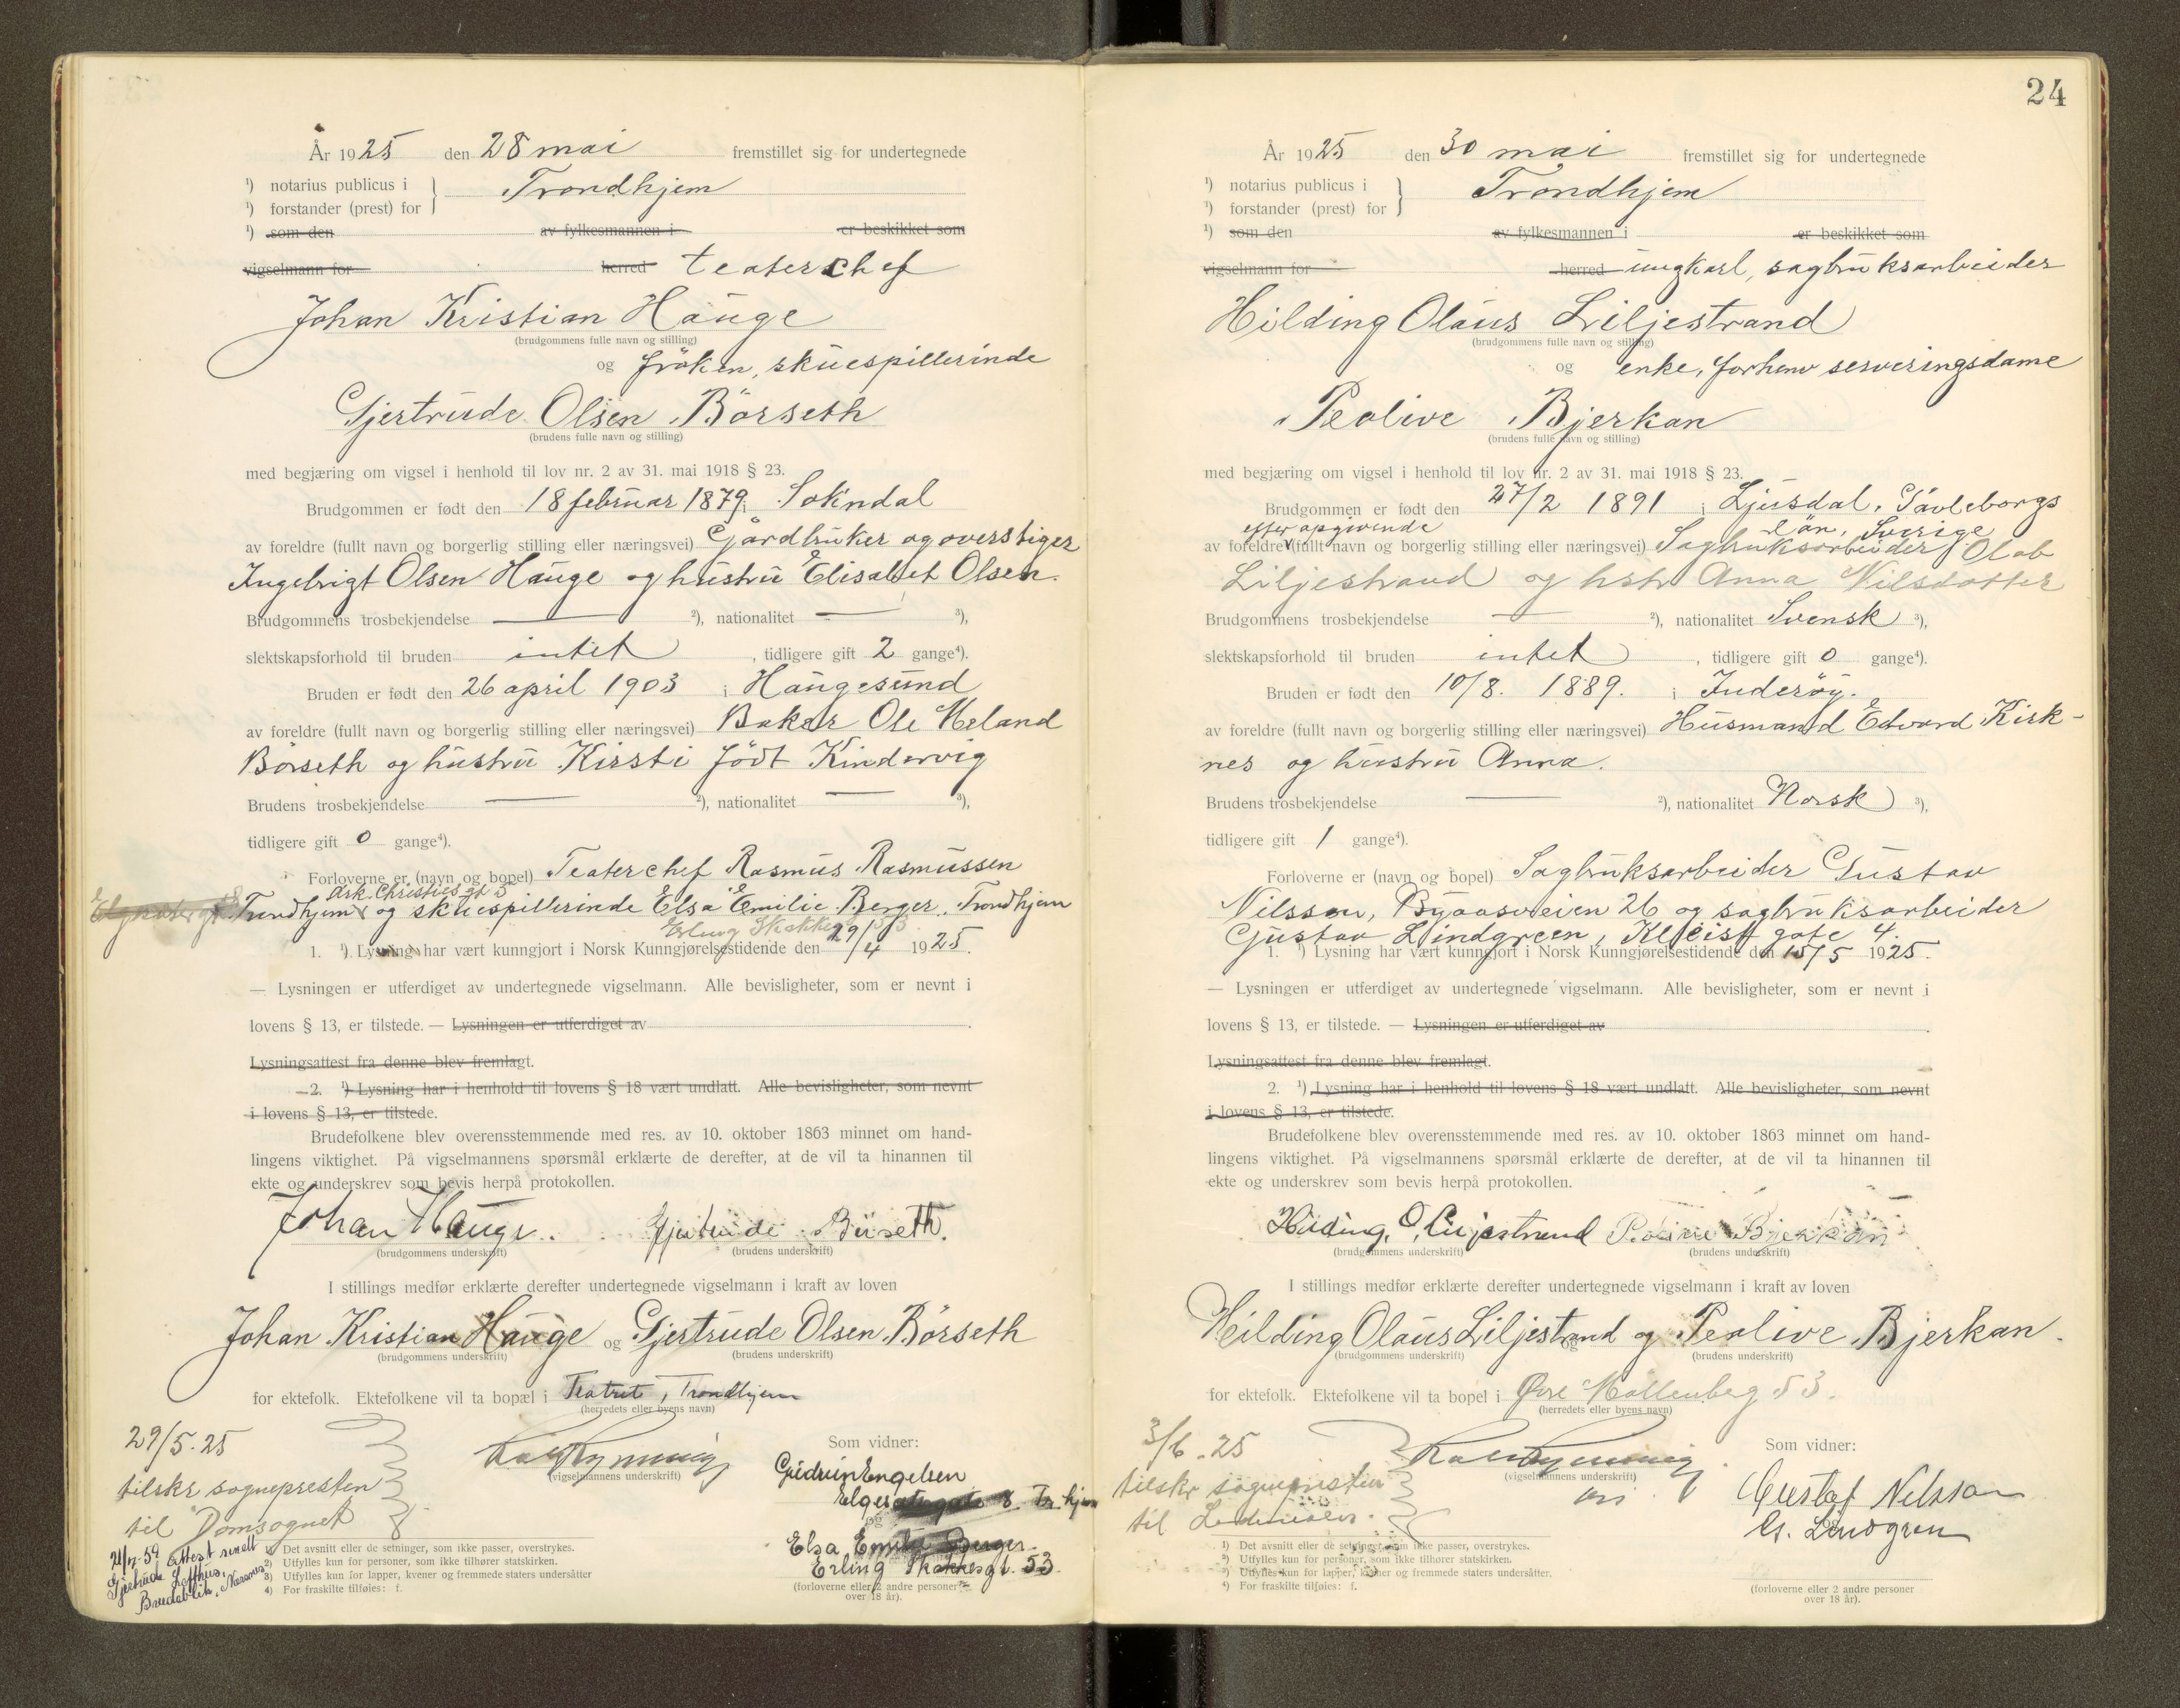 År 1925 den 28 mai fremstillet sig for undertegnede
¹) notarius publicus i
¹) forstander (prest) for } Trondhjem
¹) som den av fylkesmannen i er beskikket som
vigselmann for herred teaterchef
Johan Kristian Hauge
(brudgommens fulle navn og stilling)
og fröken, skuespillerinde
Gjertrude Olsen Börseth
(brudens fulle navn og stilling)
med begjæring om vigsel i henhold til lov nr. 2 av 31. mai 1918 § 23.
Brudgommen er født den 18 februar 1879 i Sokndal
av foreldre (fullt navn og borgerlig stilling eller næringsvei) Gårdbruker og overstiger
Ingebrigt Olsen Hauge og hustru Elisabet Olsen.
Brudgommens trosbekjendelse — ²), nationalitet — ³),
slektskapsforhold til bruden intet, tidligere gift 2 gange⁴).
Bruden er født den 26 april 1903 i Haugesund
av foreldre (fullt navn og borgerlig stilling eller næringsvei) Baker Ole Meland
Börseth og hustru Kirsti født Kindervig
Brudens trosbekjendelse — ²), nationalitet — ³),
tidligere gift 0 gange⁴).
Forloverne er (navn og bopel) Teaterchef Rasmus Rasmussen
Ark. Christies gt 5
Trondhjem og skuespillerinde Elsa Emilie Berger, Trondhjem
Erling Skakkes 53
1. ¹) Lysning har vært kunngjort i Norsk Kunngjørelsestidende den 29/4 1925.
— Lysningen er utferdiget av undertegnede vigselmann. Alle bevisligheter, som er nevnt i
lovens § 13, er tilstede. — Lysningen er utferdiget av
Lysningsattest fra denne blev fremlagt.
2. ¹) Lysning har i henhold til lovens § 18 vært undlatt. Alle bevisligheter, som nevnt
i lovens § 13, er tilstede.
Brudefolkene blev overensstemmende med res. av 10. oktober 1863 minnet om hand-
lingens viktighet. På vigselmannens spørsmål erklærte de derefter, at de vil ta hinannen til
ekte og underskrev som bevis herpå protokollen.
Johan Hauge. Gjertrude Börseth.
(brudgommens underskrift) (brudens underskrift)
I stillings medfør erklærte derefter undertegnede vigselmann i kraft av loven
Johan Kristian Hauge og Gjertrude Olsen Börseth
(brudgommens underskrift) (brudens underskrift)
for ektefolk. Ektefolkene vil ta bopæl i Teatret, Trondhjem
(herredets eller byens navn)
29/5.25
tilskr sognepresten
til Domsognet
(vigselmannens underskrift)
Som vidner:
Gudrun Engelsen
Elgesetergate 8 Tr.hjem
og
Elsa Emilie Berger
Erling Skakkesgt. 53
(forloverne eller 2 andre personer
over 18 år).
attest sendt
Gjertrude Lofthus,
Breidablik, Nærsnes
¹) Det avsnitt eller de setninger, som ikke passer, overstrykes.
²) Utfylles kun for personer, som ikke tilhører statskirken.
³) Utfylles kun for lapper, kvener og fremmede staters undersåtter
⁴) For fraskilte tilføies: f.
24
År 1925 den 30 mai fremstillet sig for undertegnede
¹) notarius publicus i
¹) forstander (prest) for } Trondhjem
¹) som den av fylkesmannen i er beskikket som
vigselmann for herred ungkarl, sagbruksarbeider
Hilding Olaus Liljestrand
(brudgommens fulle navn og stilling)
og enke, forhenv serveringsdame
Peolive Bjerkan
(brudens fulle navn og stilling)
med begjæring om vigsel i henhold til lov nr. 2 av 31. mai 1918 § 23.
Brudgommen er født den 27/2 1891 i Ljusdal, Gävleborgs
efter opgivende län, Sverige
av foreldre (fullt navn og borgerlig stilling eller næringsvei) Sagbruksarbeider Olob
Liljestrand og hstr Anna Nilsdotter
Brudgommens trosbekjendelse — ²), nationalitet Svensk ³),
slektskapsforhold til bruden intet, tidligere gift 0 gange⁴).
Bruden er født den 10/8. 1889. i Inderöy.
av foreldre (fullt navn og borgerlig stilling eller næringsvei) Husmand Edvard Kirk-
nes og hustru Anna.
Brudens trosbekjendelse — ²), nationalitet Norsk ³),
tidligere gift 1 gange⁴).
Forloverne er (navn og bopel) Sagbruksarbeider Gustav
Nilsson, Byaasveien 26 og sagbruksarbeider
Gustav Lindgreen, Kleists gate 4.
1. ¹) Lysning har vært kunngjort i Norsk Kunngjørelsestidende den 15/5 1925.
— Lysningen er utferdiget av undertegnede vigselmann. Alle bevisligheter, som er nevnt i
lovens § 13, er tilstede. — Lysningen er utferdiget av
Lysningsattest fra denne blev fremlagt.
2. ¹) Lysning har i henhold til lovens § 18 vært undlatt. Alle bevisligheter, som nevnt
i lovens § 13, er tilstede.
Brudefolkene blev overensstemmende med res. av 10. oktober 1863 minnet om hand-
lingens viktighet. På vigselmannens spørsmål erklærte de derefter, at de vil ta hinannen til
ekte og underskrev som bevis herpå protokollen.
Hilding, O, Liljestrand Peolive Bjerkan
(brudgommens underskrift) (brudens underskrift)
I stillings medfør erklærte derefter undertegnede vigselmann i kraft av loven
Hilding Olaus Liljestrand og Peolive Bjerkan.
(brudgommens underskrift) (brudens underskrift)
for ektefolk. Ektefolkene vil ta bopel i Øvre Møllenberg 53.
(herredets eller byens navn)
3/6.25
tilskr sognepresten
til Lademoen.
(vigselmannens underskrift)
Som vidner:
Gustaf Nilsson
og
G. Lindgren
(forloverne eller 2 andre personer
over 18 år).
¹) Det avsnitt eller de setninger, som ikke passer, overstrykes.
²) Utfylles kun for personer, som ikke tilhører statskirken.
³) Utfylles kun for lapper, kvener og fremmede staters undersåtter.
⁴) For fraskilte tilføies: f.